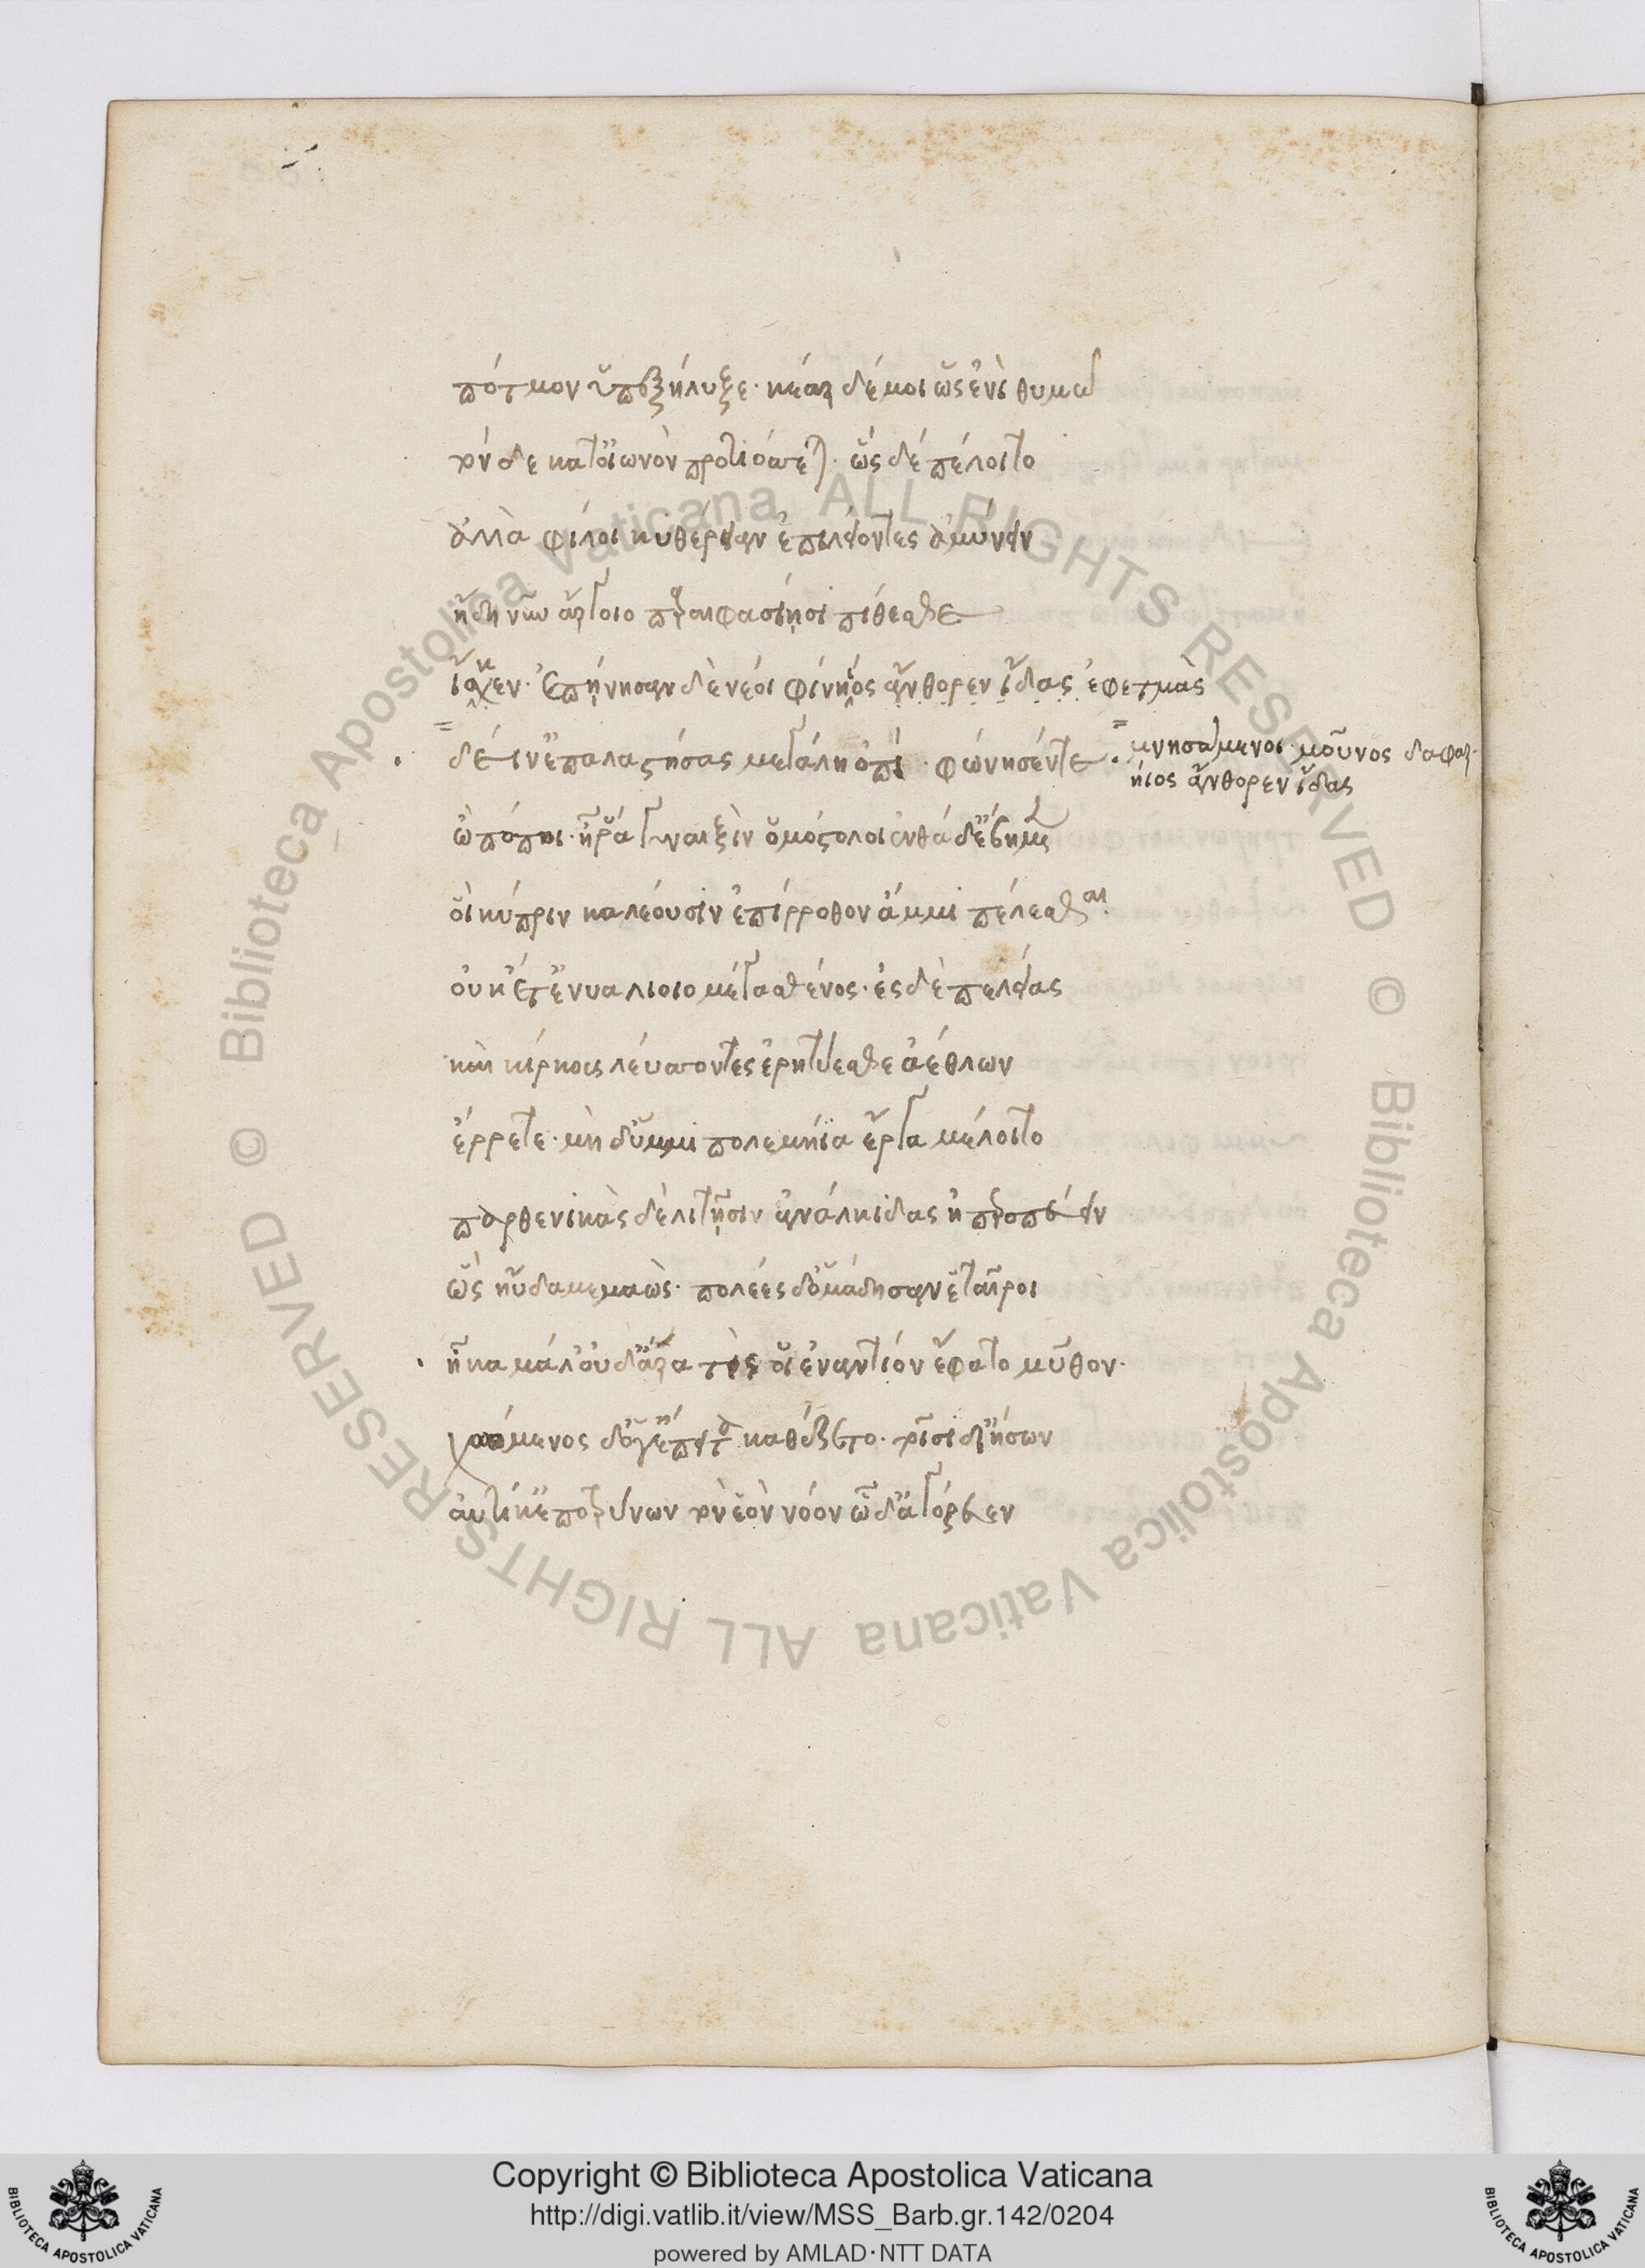 πότμον ὑπεξήλυξε· κέαρ δέ μοι ὡς ἐνὶ θυμῶ
τόνδε κατ' οἰωνὸν προτιόσσεται· ὣς δὲ πέλοιτο
ἀλλὰ φίλοι κυθέρειαν ἐπικλείοντες ἀμύνειν
ἤδη νῦν ἄργοιο παραιφασίῃσι πίθεσθε
ἴσκεν· ἐπῄνησαν δὲ νέοι φινῆος ἄνθορεν ἴδας ἐφετμὰς
δείν' ἐπαλαστήσας μεγάλη ὀπί· φώνησέν τε·
μνησάμενοι· μοῦνος δ' ἀφαρ
ήιος ἄνθορεν ἴδας
ὢ πόποι· ἦ ῥα γυναιξὶν ὁμόστολοι ἐνθάδ' ἔβημεν
οἳ κύπριν καλέουσιν ἐπίρροθον ἄμμι πέλεσθαι·
οὐκέτ' ἐνυαλίοιο μέγα σθένος· ἐς δὲ πελείας
καὶ κίρκους λεύσσοντες ἐρητύεσθε ἀέθλων
ἔρρετε· μὴ δ' ὔμμι πολεμήϊα ἔργα μέλοιτο
παρθενικὰς δὲ λιτῇσιν ἀνάλκιδας ἠπεροπεύειν
ὣς ηὔδα μεμαώς· πολέες δ' ὁμάδησαν ἑταῖροι
ἦκα μάλ' οὐδ' ἄρα τίς οἱ ἐναντίον ἔφατο μῦθον·
χωόμενος δ' ὅγ' ἔπειτα καθέζετο· τοῖσι δ' ἰήσων
αὐτίκ' ἐποτρύνων τὸν ἑὸν νόον ὧδ' ἀγόρευεν
© Biblioteca Apostolica Vaticana ALL RIGHTS RESERVED © Biblioteca Apostolica Vaticana ALL RIGHTS RESERVED
Copyright © Biblioteca Apostolica Vaticana
http://digi.vatlib.it/view/MSS_Barb.gr.142/0204
powered by AMLAD·NTT DATA
BIBLIOTECA APOSTOLICA VATICANA
BIBLIOTECA APOSTOLICA VATICANA